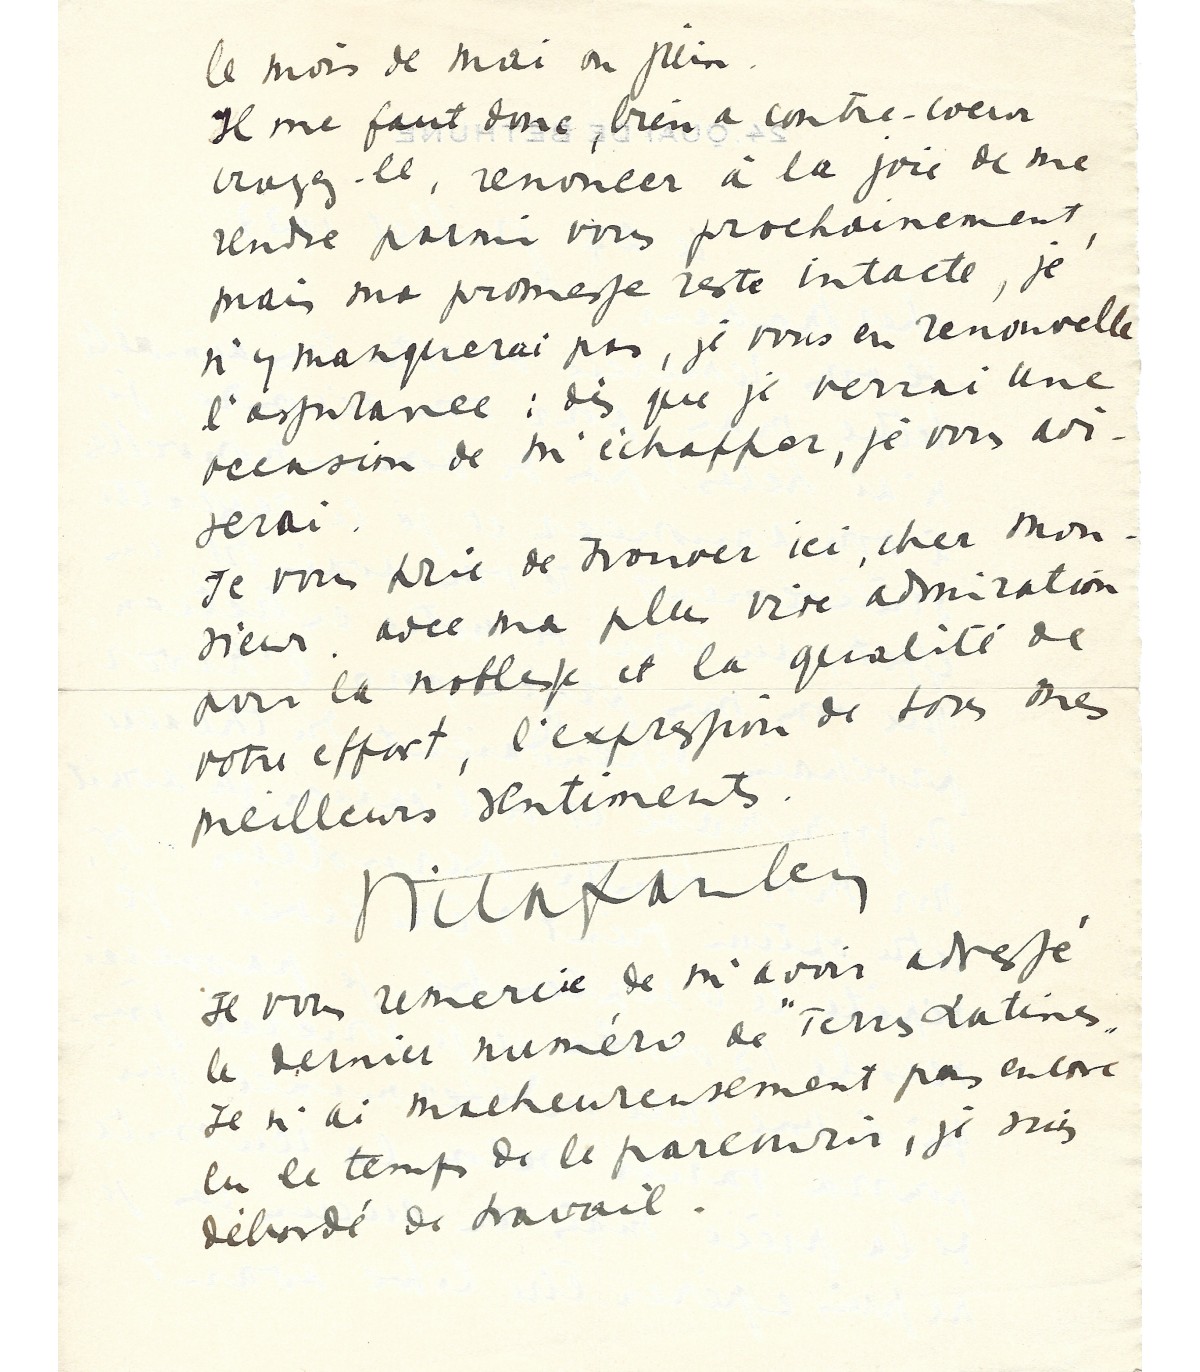 le mois de mai ou juin.
Il me faut donc, bien a contre-coeur
24, QUAI DE BÉTHUNE
croyez-le, renoncer à la joie de me
rendre parmi vous prochainement,
mais ma promesse reste intacte, je
n'y manquerai pas, je vous en renouvelle
l'assurance : dès que je verrai une
occasion de m'échapper, je vous avi-
serai.
Je vous prie de trouver ici, cher Mon-
sieur, avec ma plus vive admiration
pour la noblesse et la qualité de
votre effort, l'expression de tous mes
meilleurs sentiments.
Je vous remercie de m'avoir adressé
le dernier numéro de "Terres Latines"
Je n'ai malheureusement pas encore
eu le temps de le parcourir, je suis
débordé de travail.